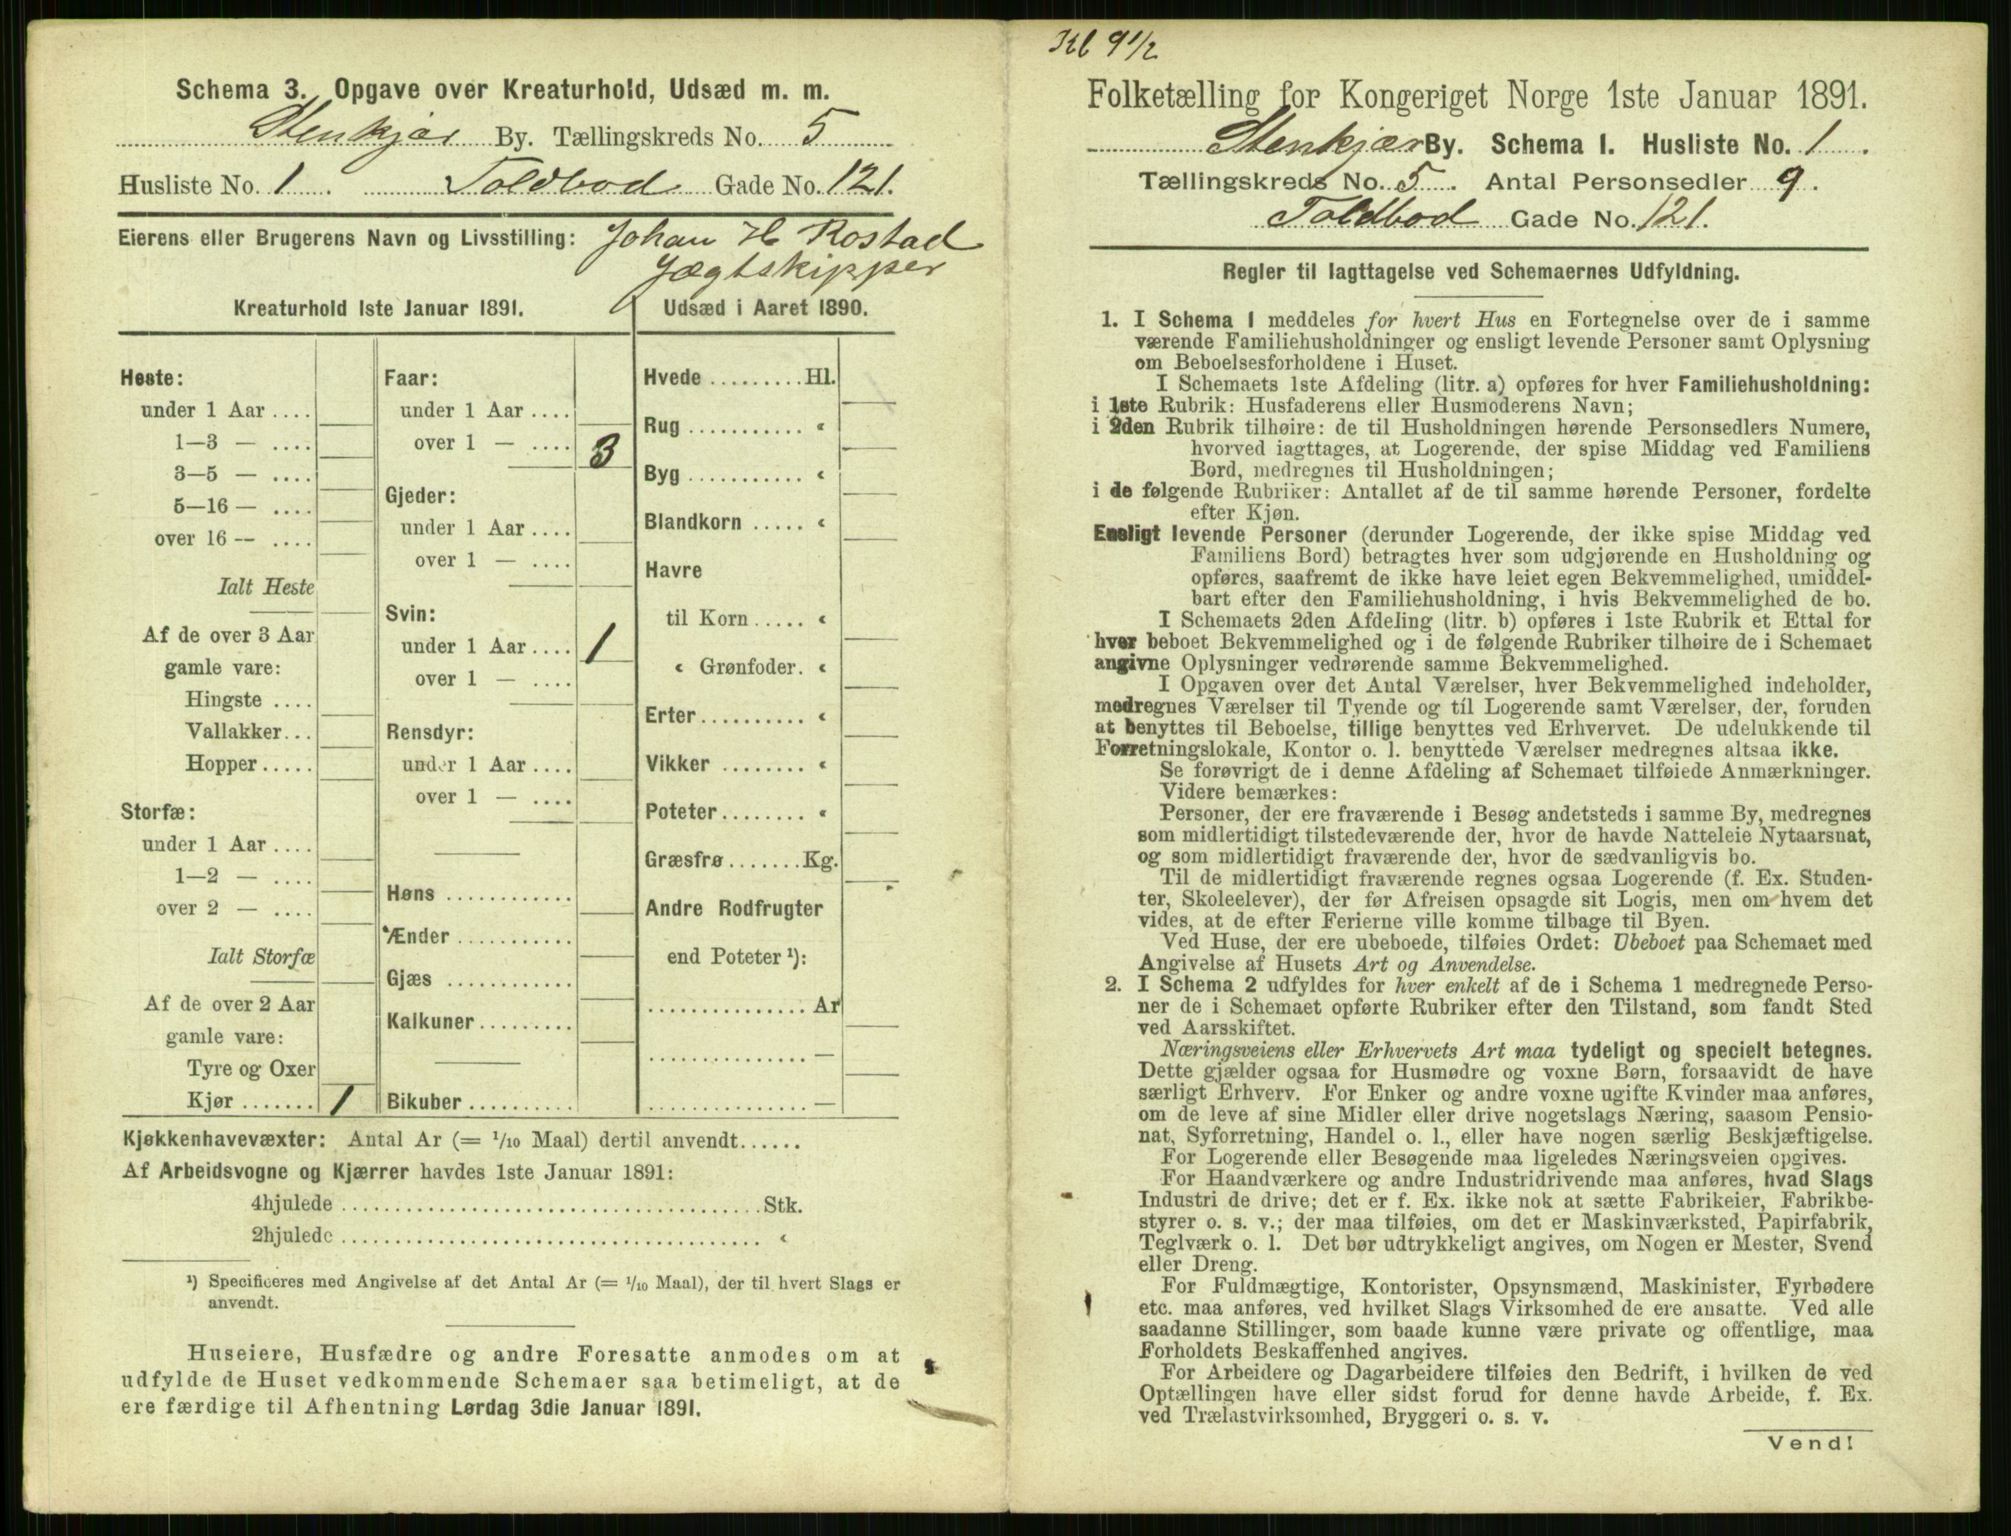 Schema 3. Opgave over Kreaturhold, Udsæd m. m.
Stenkjær By. Tællingskreds No. 5
Husliste No. 1 Toldbod Gade No. 121.
Eierens eller Brugerens Navn og Livsstilling: Johan H Rostad
Jægtskipper
Kreaturhold 1ste Januar 1891.
Heste:
under 1 Aar ....
1—3 — ....
3—5 — ....
5—16 — ....
over 16 — ....
Ialt Heste
Af de over 3 Aar
gamle vare:
Hingste ....
Vallakker...
Hopper.....
Storfæ:
under 1 Aar ....
1—2 — ....
over 2 — ....
Ialt Storfæ
Af de over 2 Aar
gamle vare:
Tyre og Oxer
Kjør ....... 1
Faar:
under 1 Aar ....
over 1 — .... 3
Gjeder:
under 1 Aar ....
over 1 — ....
Svin:
under 1 Aar .... 1
over 1 — ....
Rensdyr:
under 1 Aar ....
over 1 — ....
Høns ...........
Ænder ..........
Gjæs ...........
Kalkuner ........
Bikuber .........
Udsæd i Aaret 1890.
Hvede ......... Hl.
Rug ........... «
Byg ........... «
Blandkorn ..... «
Havre
til Korn ..... «
« Grønfoder. «
Erter ......... «
Vikker ........ «
Poteter ........ «
Græsfrø ....... Kg.
Andre Rodfrugter
end Poteter ¹):
............... Ar
............... —
............... —
Kjøkkenhavevæxter: Antal Ar (= 1/10 Maal) dertil anvendt......
Af Arbeidsvogne og Kjærrer havdes 1ste Januar 1891:
4hjulede ........................................ Stk.
2hjulede ........................................ «
¹) Specificeres med Angivelse af det Antal Ar (= 1/10 Maal), der til hvert Slags er
anvendt.
Huseiere, Husfædre og andre Foresatte anmodes om at
udfylde de Huset vedkommende Schemaer saa betimeligt, at de
ere færdige til Afhentning Lørdag 3die Januar 1891.
Kl 9 1/2
Folketælling for Kongeriget Norge 1ste Januar 1891.
Stenkjær By. Schema I. Husliste No. 1.
Tællingskreds No. 5. Antal Personsedler 9.
Toldbod Gade No. 121.
Regler til Iagttagelse ved Schemaernes Udfyldning.
1. I Schema I meddeles for hvert Hus en Fortegnelse over de i samme
værende Familiehusholdninger og ensligt levende Personer samt Oplysning
om Beboelsesforholdene i Huset.
I Schemaets 1ste Afdeling (litr. a) opføres for hver Familiehusholdning:
i 1ste Rubrik: Husfaderens eller Husmoderens Navn;
i 2den Rubrik tilhøire: de til Husholdningen hørende Personsedlers Numere,
hvorved iagttages, at Logerende, der spise Middag ved Familiens
Bord, medregnes til Husholdningen;
i de følgende Rubriker: Antallet af de til samme hørende Personer, fordelte
efter Kjøn.
Ensligt levende Personer (derunder Logerende, der ikke spise Middag ved
Familiens Bord) betragtes hver som udgjørende en Husholdning og
opføres, saafremt de ikke have leiet egen Bekvemmelighed, umiddel-
bart efter den Familiehusholdning, i hvis Bekvemmelighed de bo.
I Schemaets 2den Afdeling (litr. b) opføres i 1ste Rubrik et Ettal for
hver beboet Bekvemmelighed og i de følgende Rubriker tilhøire de i Schemaet
angivne Oplysninger vedrørende samme Bekvemmelighed.
I Opgaven over det Antal Værelser, hver Bekvemmelighed indeholder,
medregnes Værelser til Tyende og til Logerende samt Værelser, der, foruden
at benyttes til Beboelse, tillige benyttes ved Erhvervet. De udelukkende til
Forretningslokale, Kontor o. l. benyttede Værelser medregnes altsaa ikke.
Se forøvrigt de i denne Afdeling af Schemaet tilføiede Anmærkninger.
Videre bemærkes:
Personer, der ere fraværende i Besøg andetsteds i samme By, medregnes
som midlertidigt tilstedeværende der, hvor de havde Natteleie Nytaarsnat,
og som midlertidigt fraværende der, hvor de sædvanligvis bo.
Til de midlertidigt fraværende regnes ogsaa Logerende (f. Ex. Studen-
ter, Skoleelever), der før Afreisen opsagde sit Logis, men om hvem det
vides, at de efter Ferierne ville komme tilbage til Byen.
Ved Huse, der ere ubeboede, tilføies Ordet: Ubeboet paa Schemaet med
Angivelse af Husets Art og Anvendelse.
2. I Schema 2 udfyldes for hver enkelt af de i Schema 1 medregnede Perso-
ner de i Schemaet opførte Rubriker efter den Tilstand, som fandt Sted
ved Aarsskiftet.
Næringsveiens eller Erhvervets Art maa tydeligt og specielt betegnes.
Dette gjælder ogsaa for Husmødre og voxne Børn, forsaavidt de have
særligt Erhverv. For Enker og andre voxne ugifte Kvinder maa anføres,
om de leve af sine Midler eller drive nogetslags Næring, saasom Pensio-
nat, Syforretning, Handel o. l., eller have nogen særlig Beskjæftigelse.
For Logerende eller Besøgende maa ligeledes Næringsveien opgives.
For Haandværkere og andre Industridrivende maa anføres, hvad Slags
Industri de drive; det er f. Ex. ikke nok at sætte Fabrikeier, Fabrikbe-
styrer o. s. v.; der maa tilføies, om det er Maskinværksted, Papirfabrik,
Teglværk o. l. Det bør udtrykkeligt angives, om Nogen er Mester, Svend
eller Dreng.
For Fuldmægtige, Kontorister, Opsynsmænd, Maskinister, Fyrbødere
etc. maa anføres, ved hvilket Slags Virksomhed de ere ansatte. Ved alle
saadanne Stillinger, som baade kunne være private og offentlige, maa
Forholdets Beskaffenhed angives.
For Arbeidere og Dagarbeidere tilføies den Bedrift, i hvilken de ved
Optællingen have eller sidst forud for denne havde Arbeide, f. Ex.
ved Trælastvirksomhed, Bryggeri o. s. v.
Vend!